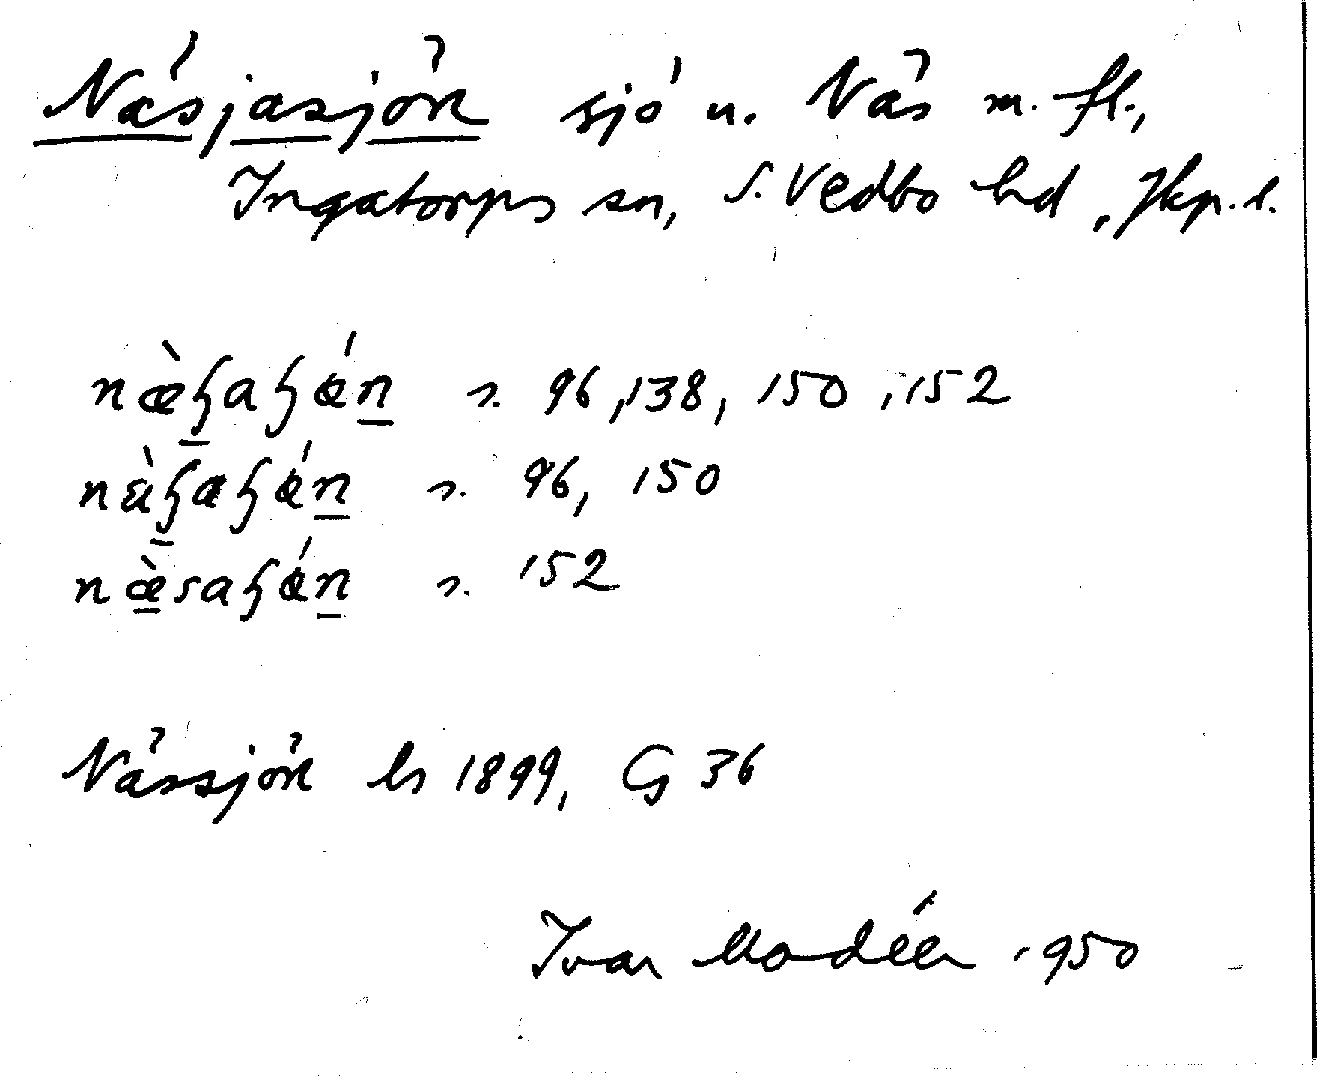 Näsjasjön sjö u. Näs m. fl.,
Ingatorps sn, S. Vedbo hd, Jkp. l.
s. 96, 138, 150, 152
s. 96, 150
s. 152
Nässjön ls 1899, G 36
Ivar Modéer 1950